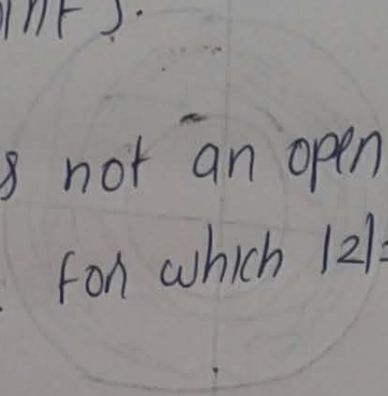 s not an open
for which |z|=